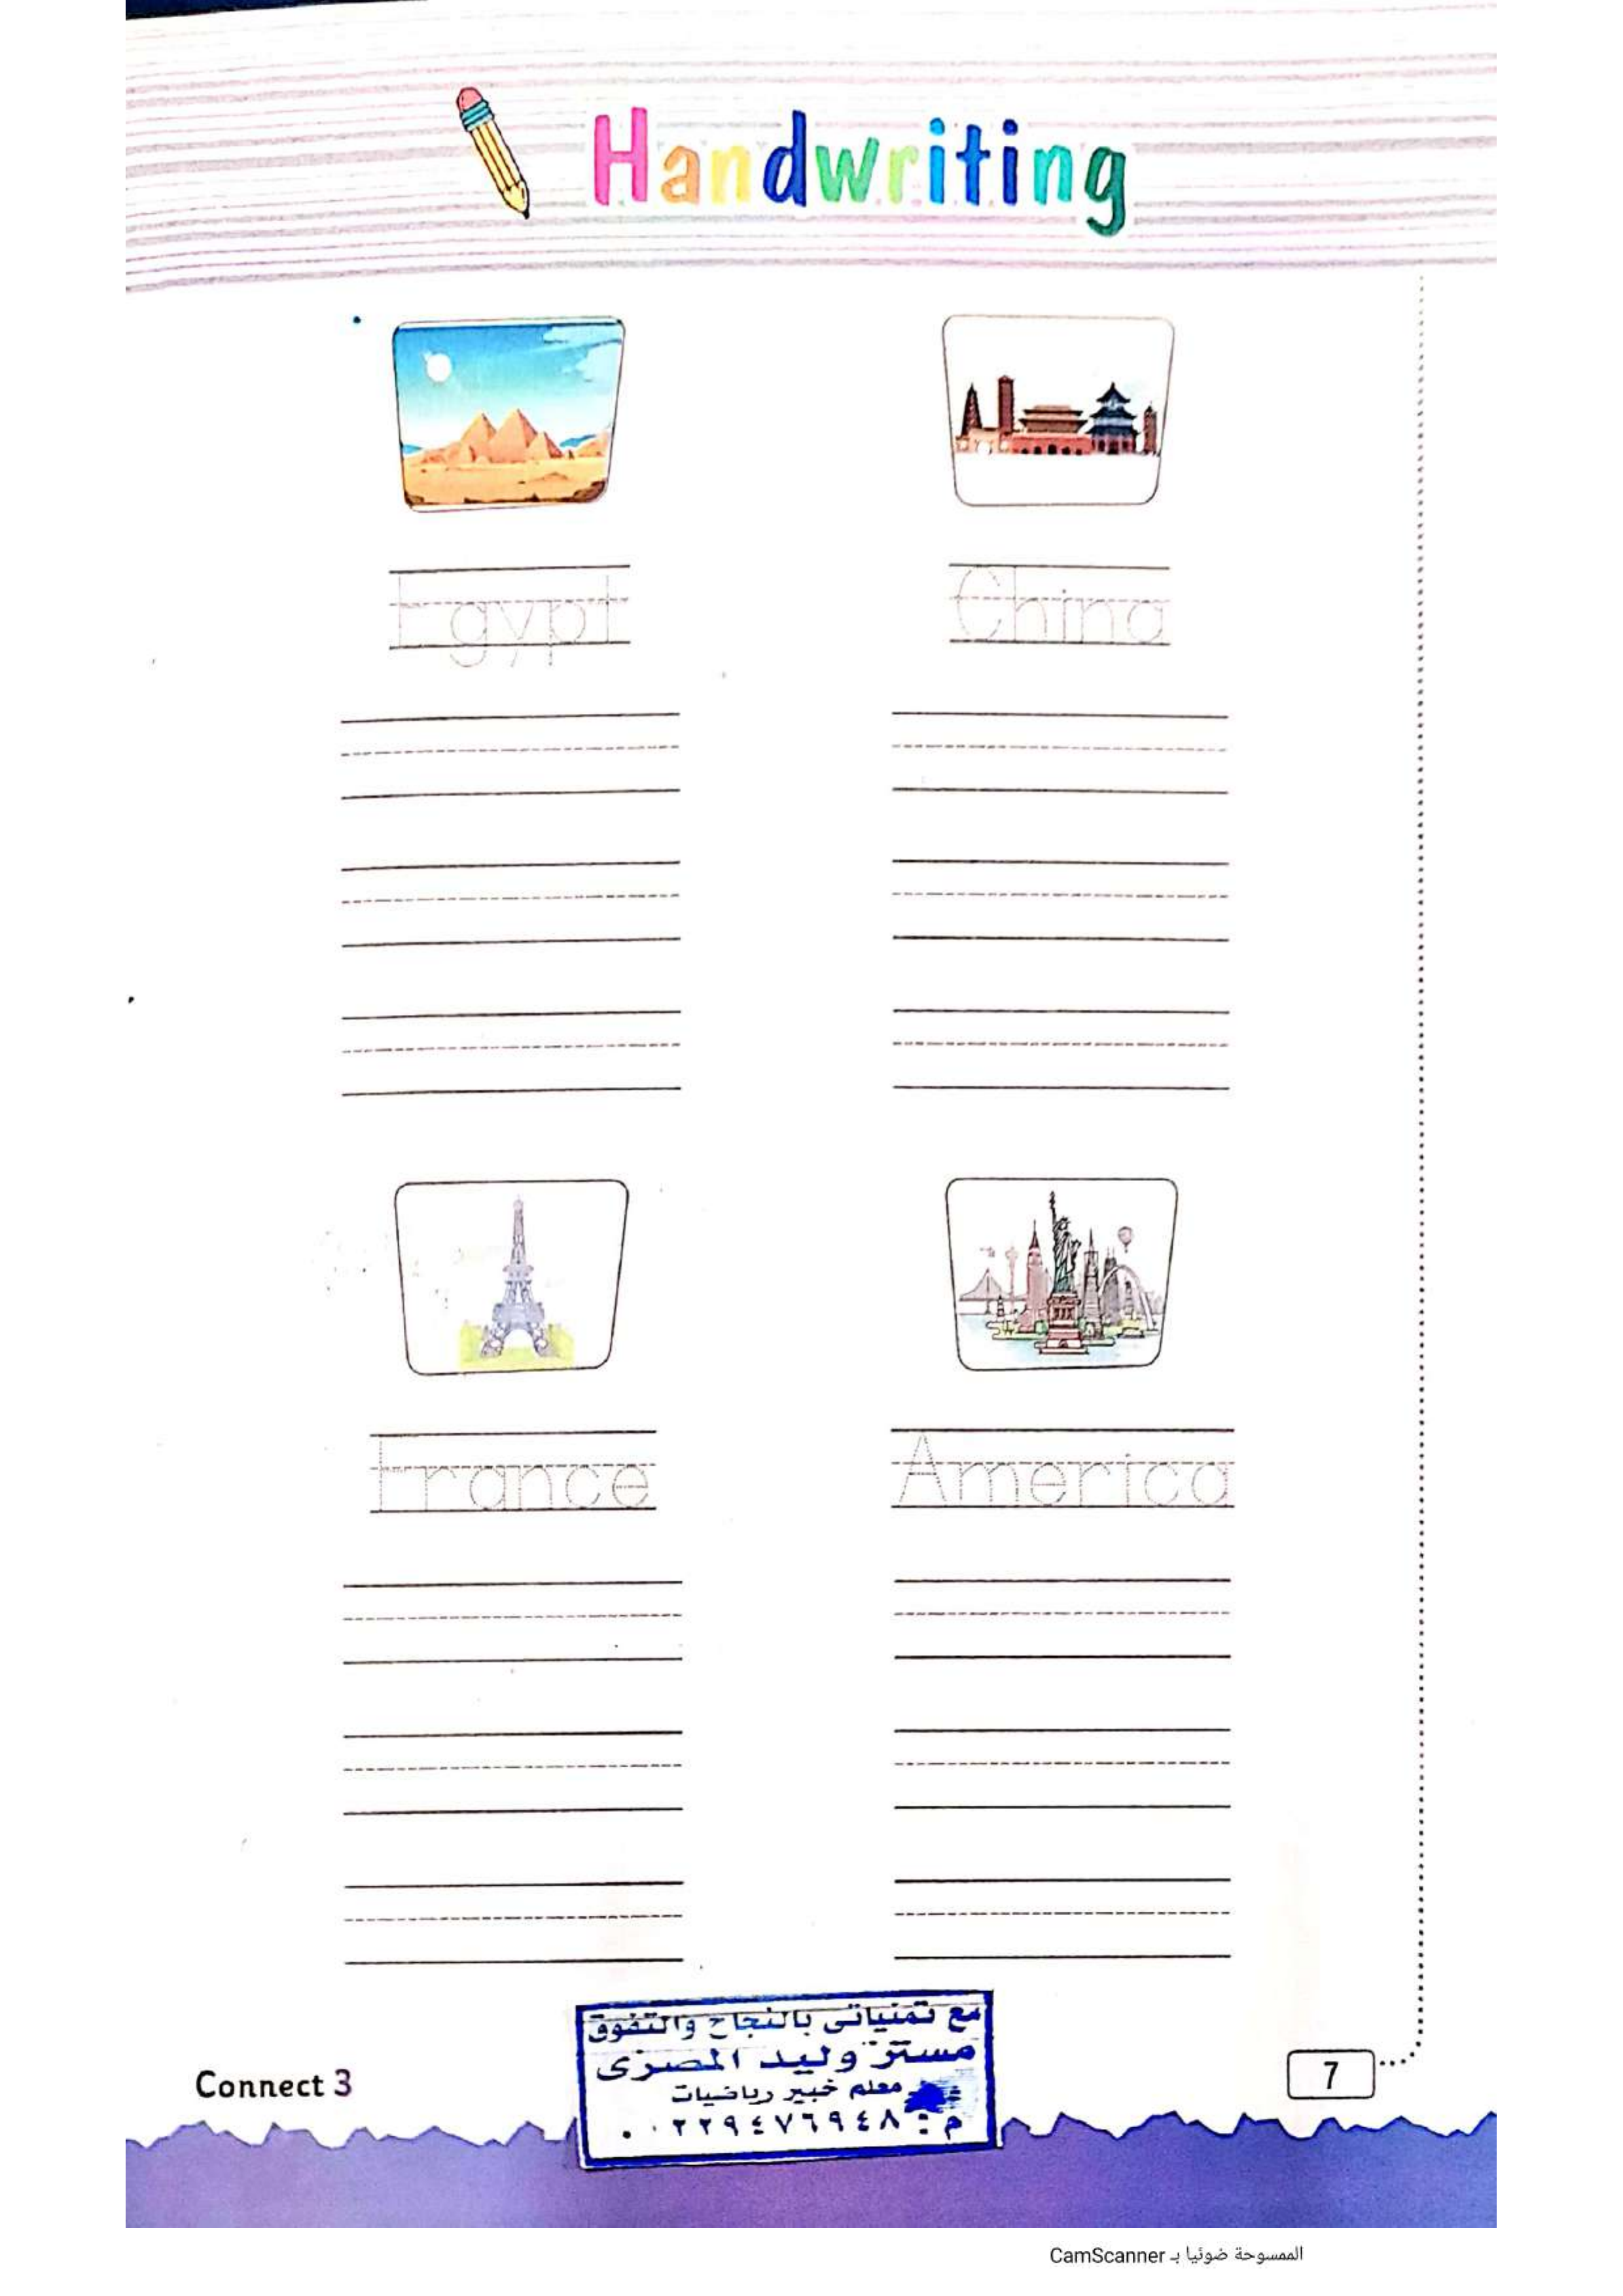 Handwriting
Egypt
China
France
America
مع تمنياتى بالنجاح والتفوق
مستر وليد المصرى
معلم خبير رياضيات
Connect 3
7
الممسوحة ضوئيا بـ CamScanner